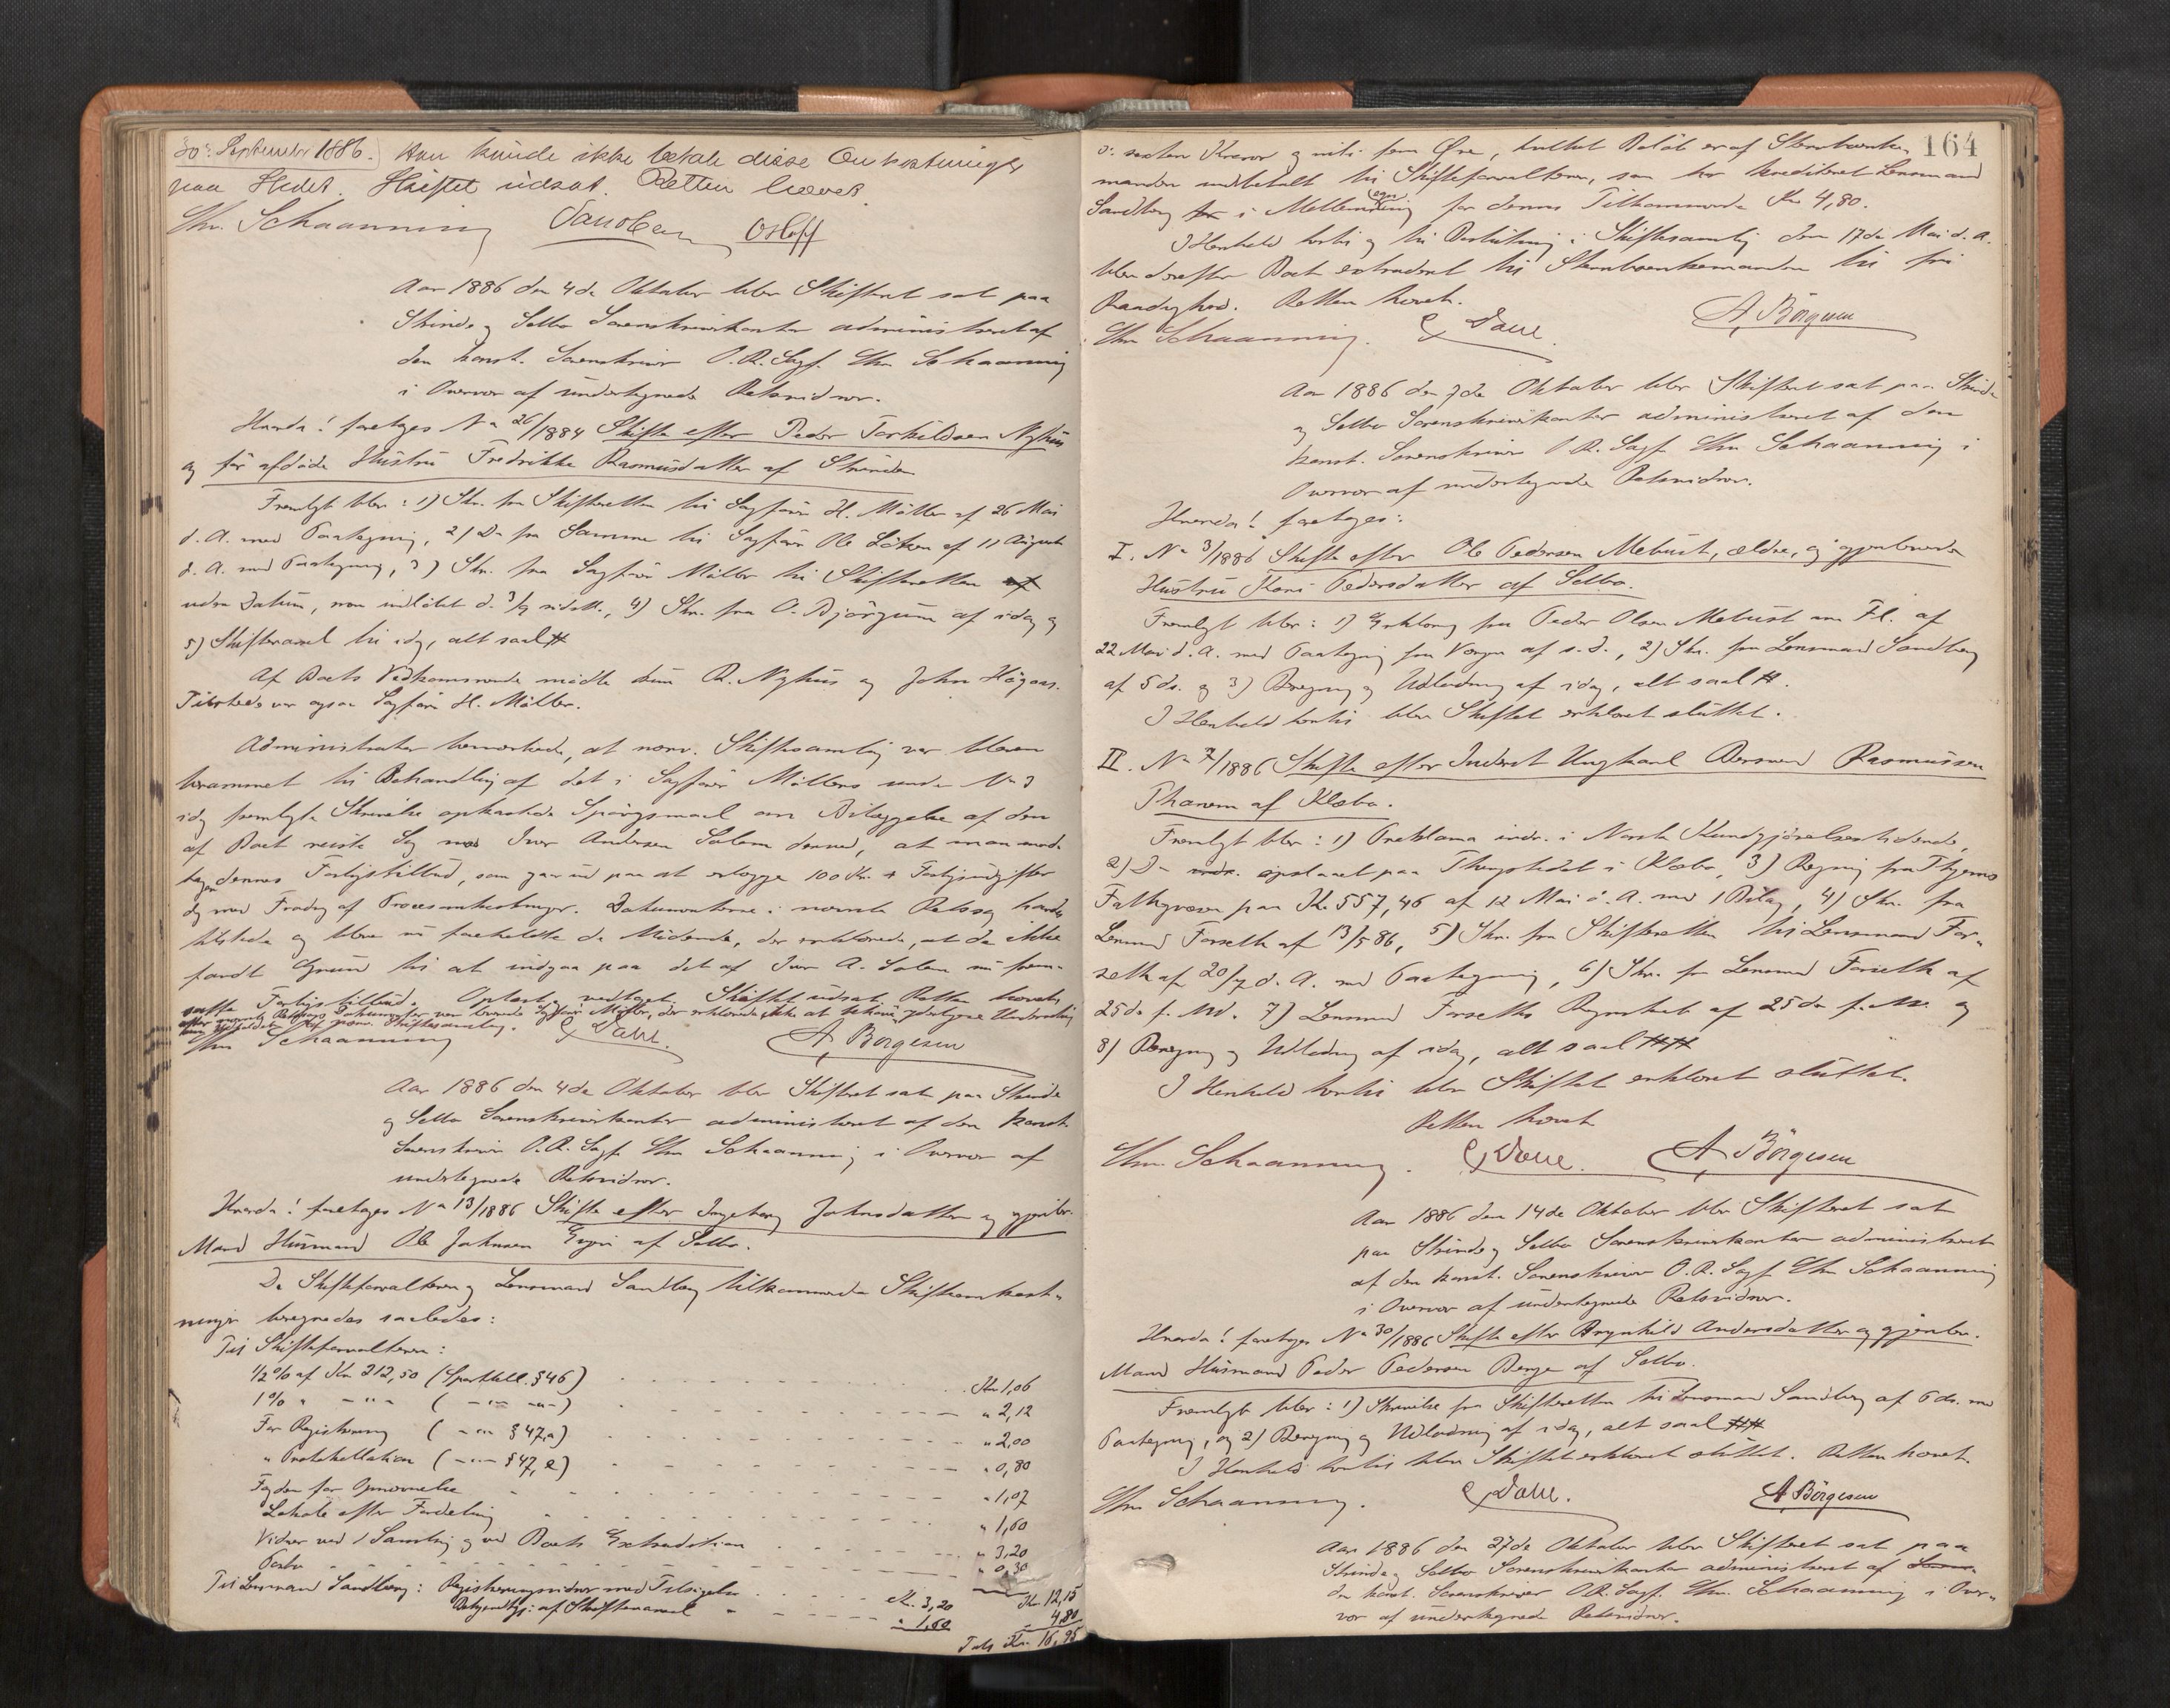 30te September 1886. Han kunde ikke betale disse Omkostninger
paa Stedet. Skiftet udsat. Retten hævet.
Chr. Schaanning Jacobsen Osloff
Aar 1886 den 4de Oktober blev Skifteret sat paa
Strinde og Selbo Sorenskriverkontor administreret af
den konst. Sorenskriver O. R. Sagf. Chr. Schaanning
i Overvær af undertegnede Retsvidner.
Hvorda! foretoges No 26/1884 Skifte efter Peder Torkildsen Nyhus
og før afdøde Hustru Fredrikke Rasmusdatter af Strinde
Fremlagt blev: 1) Skr. fra Skifteretten til Sagfører H. Möller af 26 Mai
d. A. med Paategning, 2) Do fra Samme til Sagfører Ole Löken af 11 August
d. A. med Paategning, 3) Skr. fra Sagfører Möller til Skifteretten af
uden Datum, men indløbet d. 3/9 sidstl., 4) Skr. fra O. Bjørgum af idag og
5) Skiftevarsel til idag, alt saal #
Af Boets Vedkommende mødte kun R. Nyhus og John Högaas.
Tilstede var ogsaa Sagfører H. Möller.
Administrator bemærkede, at nærv. Skiftesamling var bleven
berammet til Behandling af det i Sagfører Möllers under No 3
idag fremlagte Skrivelse opkastede Spørgsmaal om Bilæggelse af den
af Boet reiste Sag mod Iver Andersen Solem derved, at man mod-
tager dennes Forligstilbud, som gaar ud paa at erlægge 100 Kr. + Forligsudgifter
dog med Fradrag af Procesomkostninger. Dokumenterne i nævnte Retssag havdes
tilstede og blev nu foreholdte de Mødende, der erklærede, at de ikke
fandt Grund til at indgaa paa det af Iver A. Solem nu frem-
satte Forligstilbud. Oplæst og vedtaget. Skiftet udsat. Retten hævet,
efter nævnte Retssags Dokumenter var leverede Sagfører Möller, der erklærede ikke at behøve yderligere Underretning
om Udfaldet af nærv. Skiftesamling.
Chr. Schaanning E. Dahl. A. Börgesen
Aar 1886 den 4de Oktober blev Skifteret sat paa Strinde
og Selbo Sorenskriverkontor administreret af den konst.
Sorenskriver O. R. Sagf. Chr. Schaanning i Overvær af
undertegnede Retsvidner.
Hvorda! foretoges No 13/1886 Skifte efter Ingeborg Johnsdatter og gjenlev.
Mand Husmand Ole Johnsen Evjen af Selbo.
De Skifteforvalteren og Lensmand Sandberg tilkommende Skifteomkost-
ninger beregnedes saaledes:
Til Skifteforvalteren:
1/2 % af Kr 212,50 (Sportell. § 46) Kr 1,06
1 % " - " - ( - " - - " -) " 2,12
For Registrering ( - " - § 47,a) " 2,00
" Protokollation ( - " - § 47, e) " 0,80
Fogden for Opnævnelse " 1,07
Lokale efter Fordeling " 1,60
Vidner ved 1 Samling og ved Boets Extradition " 3,20
Porto " 0,30
Kr. 12,15
Til Lensmand Sandberg: Registreringsvidner med Tilsigelse Kr. 3,20
Bekjendtgj. af Skiftevarsel " 1,60 4,80
Tils. Kr. 16,95
164
o: sexten Kroner og nitifem Øre, hvilket Beløb er af Stervboenke-
manden indbetalt til Skifteforvalteren, som har krediteret Lensmand
Sandberg i Mellemregning for dennes Tilkommende Kr 4,80.
I Henhold hertil og til Beslutning i Skiftesamling den 17de Mai d. A.
blev derefter Boet extraderet til Stervboenkemanden til fri
Raadighed. Retten hævet.
Chr Schaanning. E Dahl. A. Börgesen
Aar 1886 den 7de Oktober blev Skifteret sat paa Strinde
og Selbo Sorenskriverkontor administreret af den
konst. Sorenskriver O. R. Sagf. Chr. Schaanning i
Overvær af undertegnede Retsvidner.
Hvorda! foretoges:
I. No 3/1886 Skifte efter Ole Pedersen Mebust, ældre, og gjenlevende
Hustru Kari Pedersdatter af Selbo.
Fremlagt blev: 1) Erklæring fra Peder Olsen Mebust m Fl. af
22 Mai d. A. med Paategning fra Vergen af s. D., 2) Skr. fra Lensmand Sandberg
af 5 ds. og 3) Beregning og Udlodning af idag, alt saal #.
I Henhold hertil blev Skiftet erklæret sluttet.
II. No 7/1886 Skifte efter Inderst Ungkarl Bersvend Rasmussen
Thanem af Klæbo.
Fremlagt blev: 1) Proklama indr. i Norsk Kundgjørelsestidende,
2) Do opslaaet paa Thingstedet i Klæbo, 3) Regning fra Thyems
Fattigvæsen paa Kr. 557,46 af 12 Mai d. A. med 1 Bilag, 4) Skr. fra
Lensmand Forseth af 13/5 86, 5) Skr. fra Skifteretten til Lensmand For-
seth af 20/7 d. A. med Paategning, 6) Skr. fra Lensmand Forseth af
25de f. Md. 7) Lensmand Forseths Regnskab af 25de f. M. og
8) Beregning og Udlodning af idag, alt saal ##
I Henhold hertil blev Skiftet erklæret sluttet.
Retten hævet
Chr. Schaanning. E Dahl. A. Börgesen
Aar 1886 den 14de Oktober blev Skifteret sat
paa Strinde og Selbo Sorenskriverkontor administreret
af den konst. Sorenskriver O. R. Sagf Chr Schaanning
i Overvær af undertegnede Retsvidner.
Hvorda! foretoges No 30/1886 Skifte efter Brynhild Andersdatter og gjenlev.
Mand Husmand Peder Pedersen Berge af Selbo.
Fremlagt blev: 1) Skrivelse fra Skifteretten til Lensmand Sandberg af 6 ds. med
Paategning, og 2) Beregning og Udlodning af idag, alt saal ##
I Henhold hertil blev Skiftet erklæret sluttet. Retten hævet.
Chr Schaanning. E Dahl. A Börgesen
Aar 1886 den 27de Oktober blev Skifteret sat paa
Strinde og Selbo Sorenskriverkontor administreret af
den konst. Sorenskriver O. R. Sagf. Chr. Schaanning i Over-
vær af undertegnede Retsvidner.